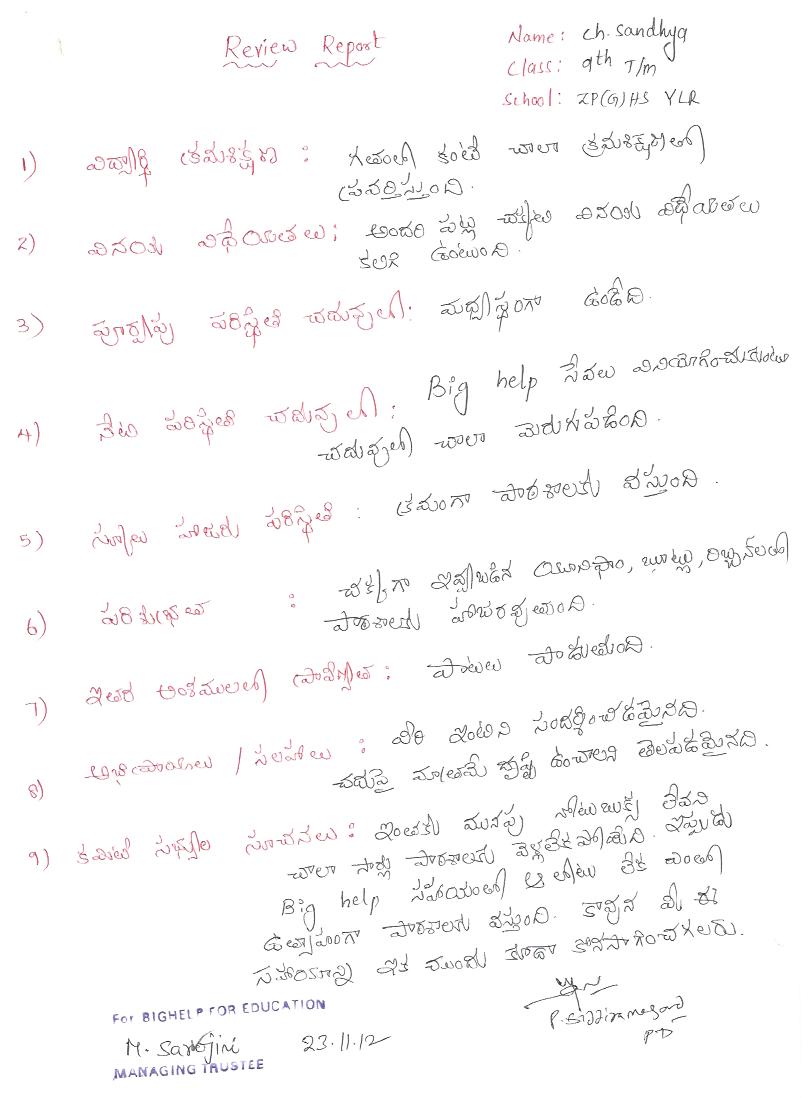 Review Report
Name: Ch. Sandhya
Class: 9th T/m
School: ZP(G)HS YLR
1) విద్యార్థి క్రమశిక్షణ : గతంలో కంటే చాలా క్రమశిక్షణతో
ప్రవర్తిస్తుంది.
2) వినయ విధేయతలు: అందరి పట్ల చక్కటి వినయ విధేయతలు
కలిగి ఉంటుంది.
3) పూర్వపు పరిస్థితి చదువులో: మధ్యస్థంగా ఉండేది.
4) నేటి పరిస్థితి చదువులో: Big help సేవలు వినియోగించుకుంటు
చదువులో చాలా మెరుగుపడింది.
5) స్కూలు హాజరు పరిస్థితి : క్రమంగా పాఠశాలకు వస్తుంది.
6) పరిశుభ్రత : చక్కగా ఇవ్వబడిన యూనిఫాం, బూట్లు, రిబ్బన్‌లతో
పాఠశాలకు హాజరవుతుంది.
7) ఇతర అంశములలో ప్రావీణ్యత : పాటలు పాడుతుంది.
8) అభిప్రాయాలు / సలహాలు : వీరి ఇంటిని సందర్శించడమైనది.
చదువుపై మాత్రమే దృష్టి ఉంచాలని తెలపడమైనది.
9) కమిటీ సభ్యుల సూచనలు: ఇంతకు మునుపు నోటుబుక్స్ లేవని
చాలా సార్లు పాఠశాలకు వెళ్లలేకపోయేది. ఇప్పుడు
Big help సహాయంతో ఆ లోటు లేక ఎంతో
ఉత్సాహంగా పాఠశాలకు వస్తుంది. కావున మీ ఈ
సహకారాన్ని ఇక ముందు కూడా కొనసాగించగలరు.
For BIGHELP FOR EDUCATION
M. Sarojini 23.11.12
MANAGING TRUSTEE
PD